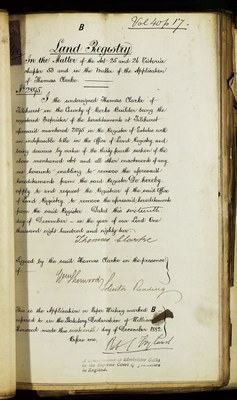 Vol 40 p 17.
B
Land Registry
In the Matter of the Act 25 and 26 Victoria
chapter 53 and in the Matter of the Application
of Thomas Clarke.
No 2895.
I the undersigned Thomas Clarke of
Tilehurst in the County of Berks Builder being the
registered Proprietor of the hereditaments at Tilehurst
aforesaid numbered 2895 in the Register of Estates with
an indefeasible title in the Office of Land Registry and
being desirous by virtue of the thirty fourth section of the
above mentioned Act and all other enactments if any
me hereunto enabling to remove the aforesaid
hereditaments from the said Register Do hereby
apply to and request the Registrar of the said Office
of Land Registry to remove the aforesaid hereditaments
from the said Register. Dated this sixteenth
day of December in the year of our Lord One
thousand eight hundred and eighty two
Thomas Clarke
Signed by the said Thomas Clarke in the presence
of
Solicitor Reading
This is the Application or Paper Writing marked B
referred to in the Statutory Declaration of William
made this sixteenth day of December 1882.
Before me,
A Commissioner to administer Oaths
in the Supreme Court of
in England.